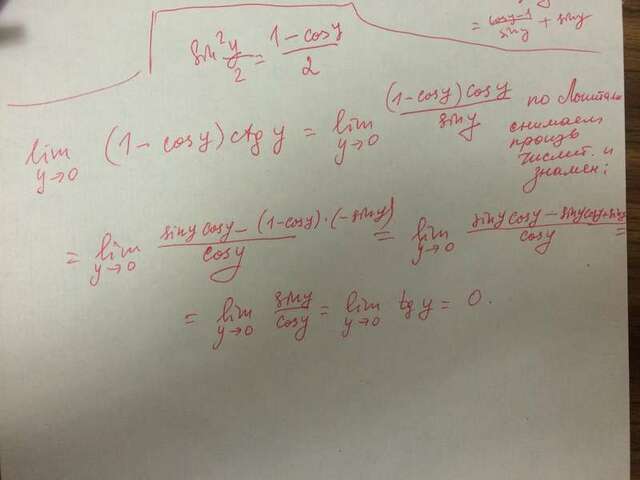 = cosy-1/siny + siny
sin² y/2 = 1-cosy/2
lim y→0 (1-cosy)ctgy = lim y→0 (1-cosy)cosy/siny по Лопиталю
снимаем
произв
числит. и
знамен:
= lim y→0 siny cosy - (1-cosy)·(-siny)/cosy = lim y→0 siny cosy - siny cosy + siny/cosy =
= lim y→0 siny/cosy = lim y→0 tgy = 0.